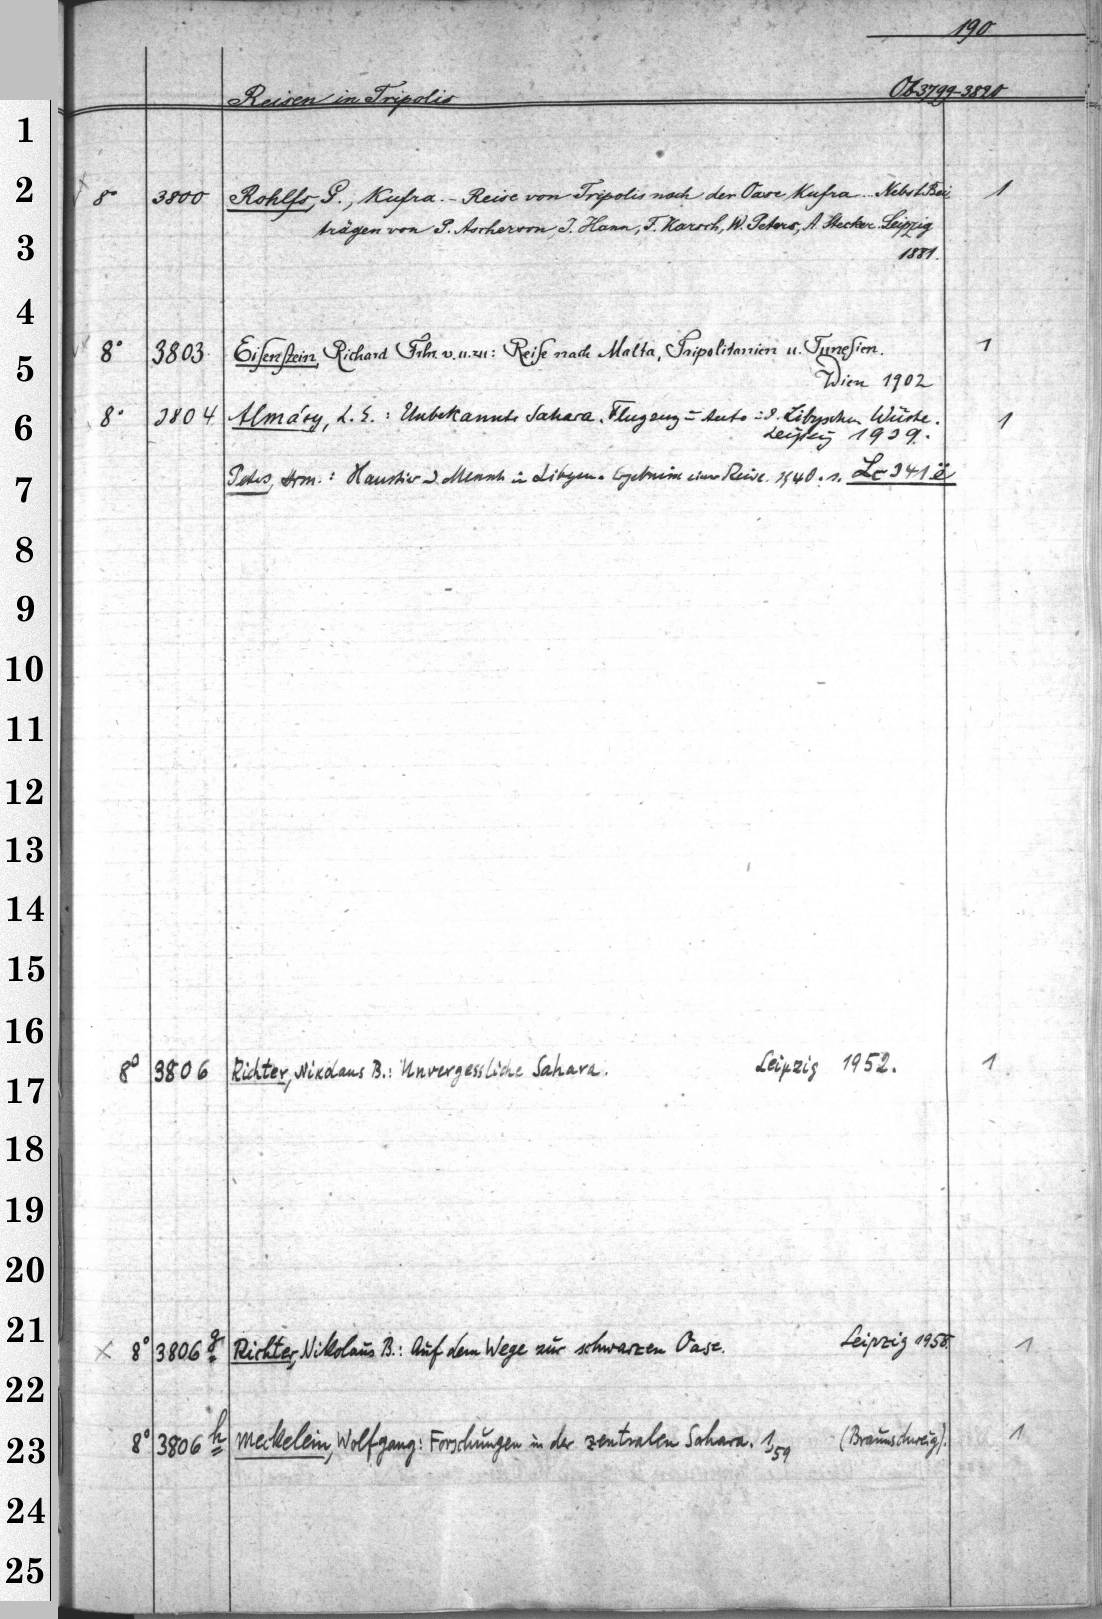 190
Reisen in Tripolis Ob 3799-3820
1
2
8° 3800 Rohlfs, G., Kufra. - Reise von Tripolis nach der Oase Kufra... Nebst Bei, 1
trägen von P. Ascherson, J. Hann, F. Karsch, W. Peters, A. Stecker. Leipzig
3
1881.
4
8° 3803 Eisenstein, Richard Frhr. v. u. zu: Reise nach Malta, Tripolitanien u. Tunesien. 1
5
Wien 1902
8° 3804 Almásy, L. E.: Unbekannte Sahara. Flugzeug u Auto i. d. Libyschen Wüste. 1
6
Leipzig 1939.
Peters, Hrm.: Haustier u. Mensch in Libyen. Ergebnisse einer Reise. 1940. s. Lc 341 ë
7
8
9
10
11
12
13
14
15
16
8° 3806 Richter, Nikolaus B.: Unvergessliche Sahara. Leipzig 1952. 1
17
18
19
20
21
× 8° 3806 g Richter, Nikolaus B.: Auf dem Wege zur schwarzen Oase. Leipzig 1958. 1
22
8° 3806 h Meckelein, Wolfgang: Forschungen in der zentralen Sahara. 1/59 (Braunschweig). 1
23
24
25